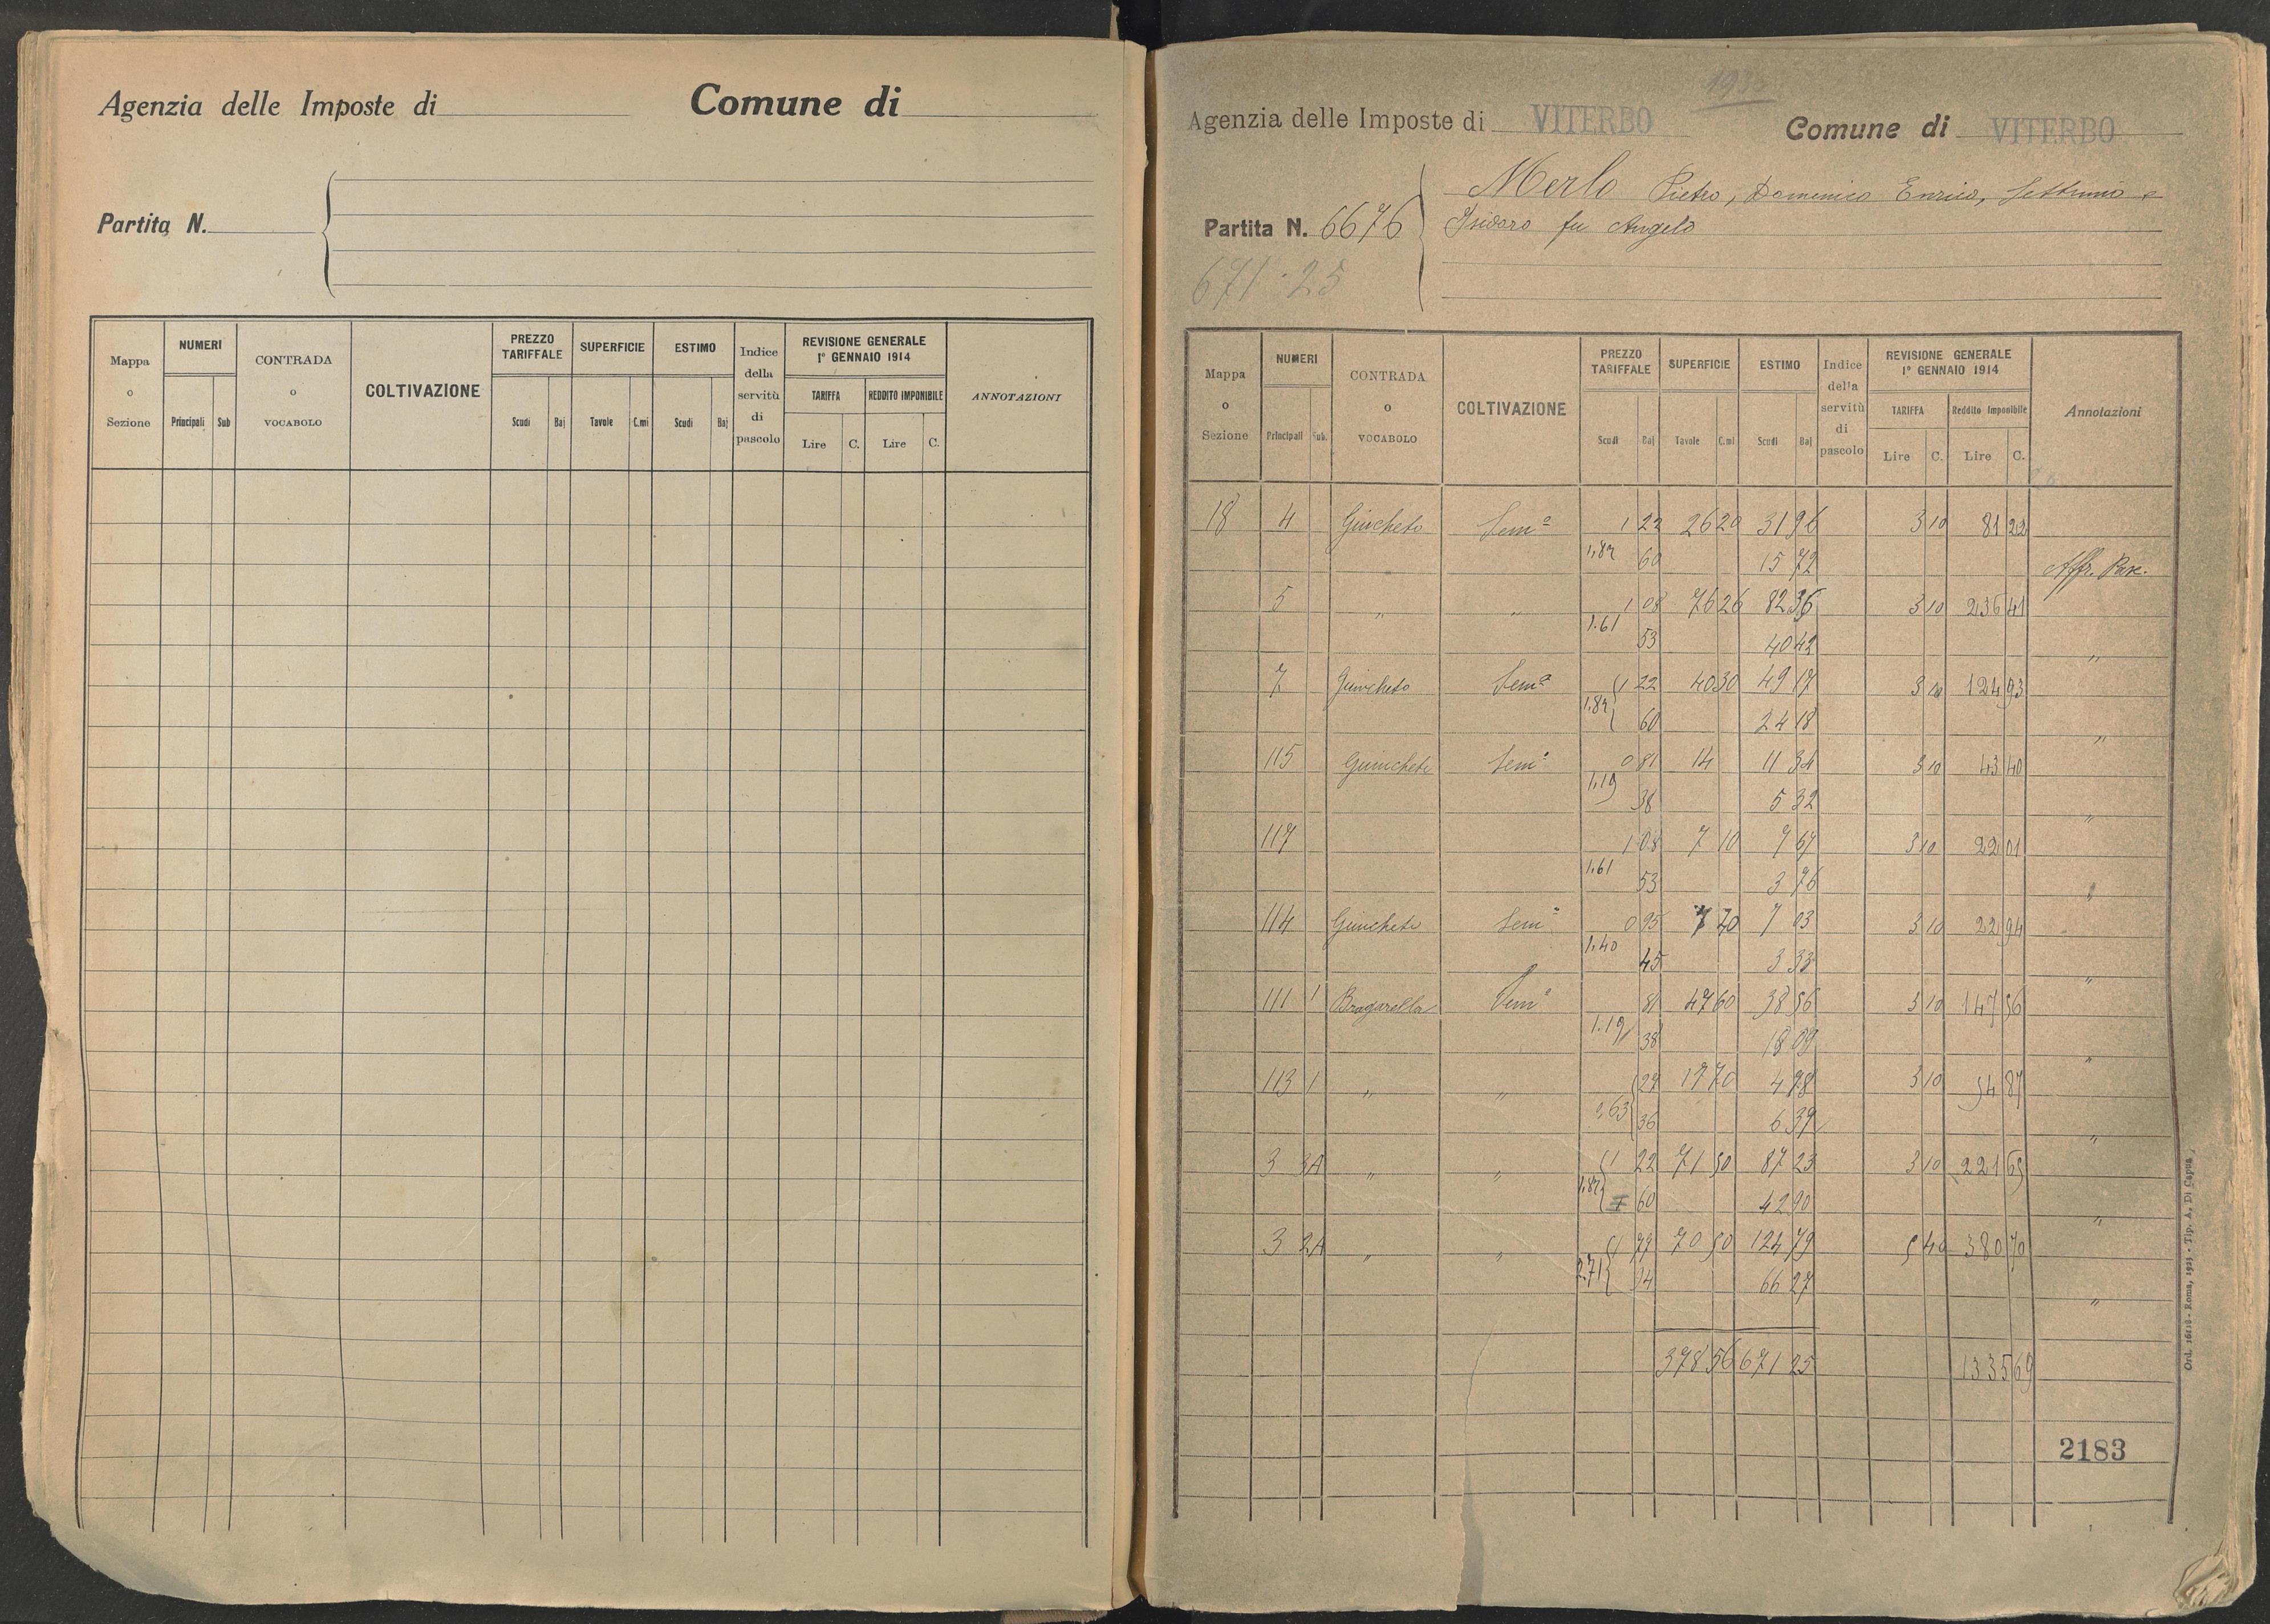 Agenzia delle Imposte di Comune di
Partita N.
Mappa o Sezione NUMERI Principali Sub CONTRADA o VOCABOLO COLTIVAZIONE PREZZO TARIFFALE Scudi Baj SUPERFICIE Tavole C.mi ESTIMO Scudi Baj Indice della servitù di pascolo REVISIONE GENERALE 1º GENNAIO 1914 TARIFFA Lire C. REDDITO IMPONIBILE Lire C. ANNOTAZIONI
Agenzia delle Imposte di VITERBO Comune di VITERBO
Merlo Pietro, Domenico Enrico, Settimio e
Partita N. 6676 Isidoro fu Angelo
671.25
Mappa o Sezione NUMERI Principali Sub. CONTRADA o VOCABOLO COLTIVAZIONE PREZZO TARIFFALE Scudi Baj SUPERFICIE Tavole C.mi ESTIMO Scudi Baj Indice della servitù di pascolo REVISIONE GENERALE 1º GENNAIO 1914 TARIFFA Lire C. Reddito Imponibile Lire C. Annotazioni
18 4 Giuncheto Semº 1 22 26 20 31 96 3 10 81 22
1,82 60 15 72 Affr. Pasc.
5 " " 1 08 76 26 82 36 3 10 236 41
1.61 53 40 42 "
7 Giuncheto Semº 1 22 40 30 49 17 3 10 124 93
1.82 60 24 18 "
115 Giuncheto Semº 0 81 14 11 34 3 10 43 40
1,19 38 5 32 "
117 1 08 7 10 7 67 3 10 22 01
1.61 53 3 76 "
114 Giuncheto Semº 0 95 7 40 7 03 3 10 22 94
1.40 45 3 33 "
111 1 Bragarella Semº 81 47 60 38 56 3 10 147 56
1.19 38 18 09 "
113 1 " " 27 17 70 4 78 3 10 54 87
0,63 36 6 37 "
3 3A " " 1 22 71 50 87 23 3 10 221 65
1.82 60 42 90 "
3 2A " " 1 77 70 50 124 79 5 40 380 70
2.71 94 66 27 "
378 56 671 25 1335 69
2183
Ord. 16518 - Roma, 1933 - Tip. A. Di Capua